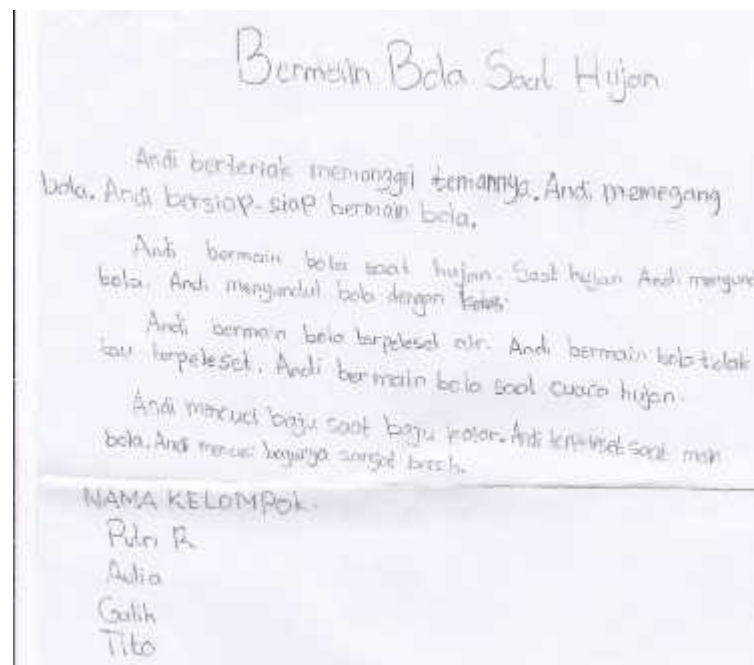 Bermain Bola Saat Hujan
Andi berteriak memanggil temannya. Andi memegang
bola. Andi bersiap-siap bermain bola.
Andi bermain bola saat hujan. Saat hujan Andi
bola. Andi menyundul bola dengan
Andi bermain bola terpeleset air. Andi bermain bola tidak
tau terpeleset. Andi bermain bola saat cuaca hujan.
Andi mencuci baju saat baju kotor. Andi terpeleset saat main
bola. Andi mencuci bajunya sangat bersih.
NAMA KELOMPOK.
Putri R
Aulia
Galih
Tito